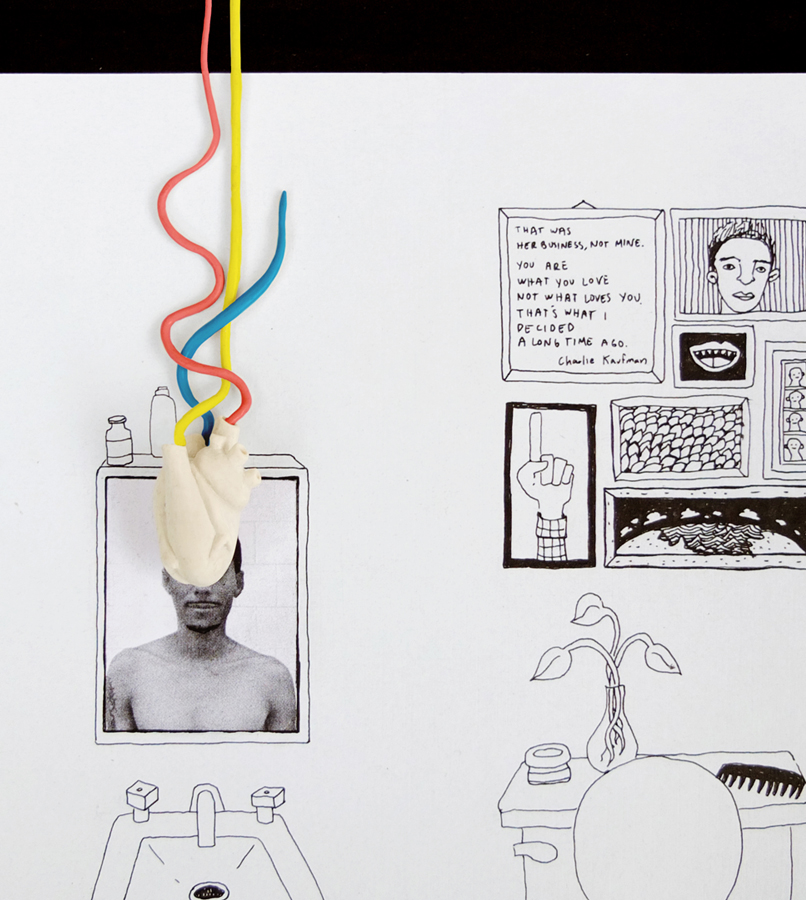 THAT WAS
HER BUSINESS, NOT MINE.
YOU ARE
WHAT YOU LOVE
NOT WHAT LOVES YOU.
THAT'S WHAT I
DECIDED
A LONG TIME AGO.
Charlie Kaufman